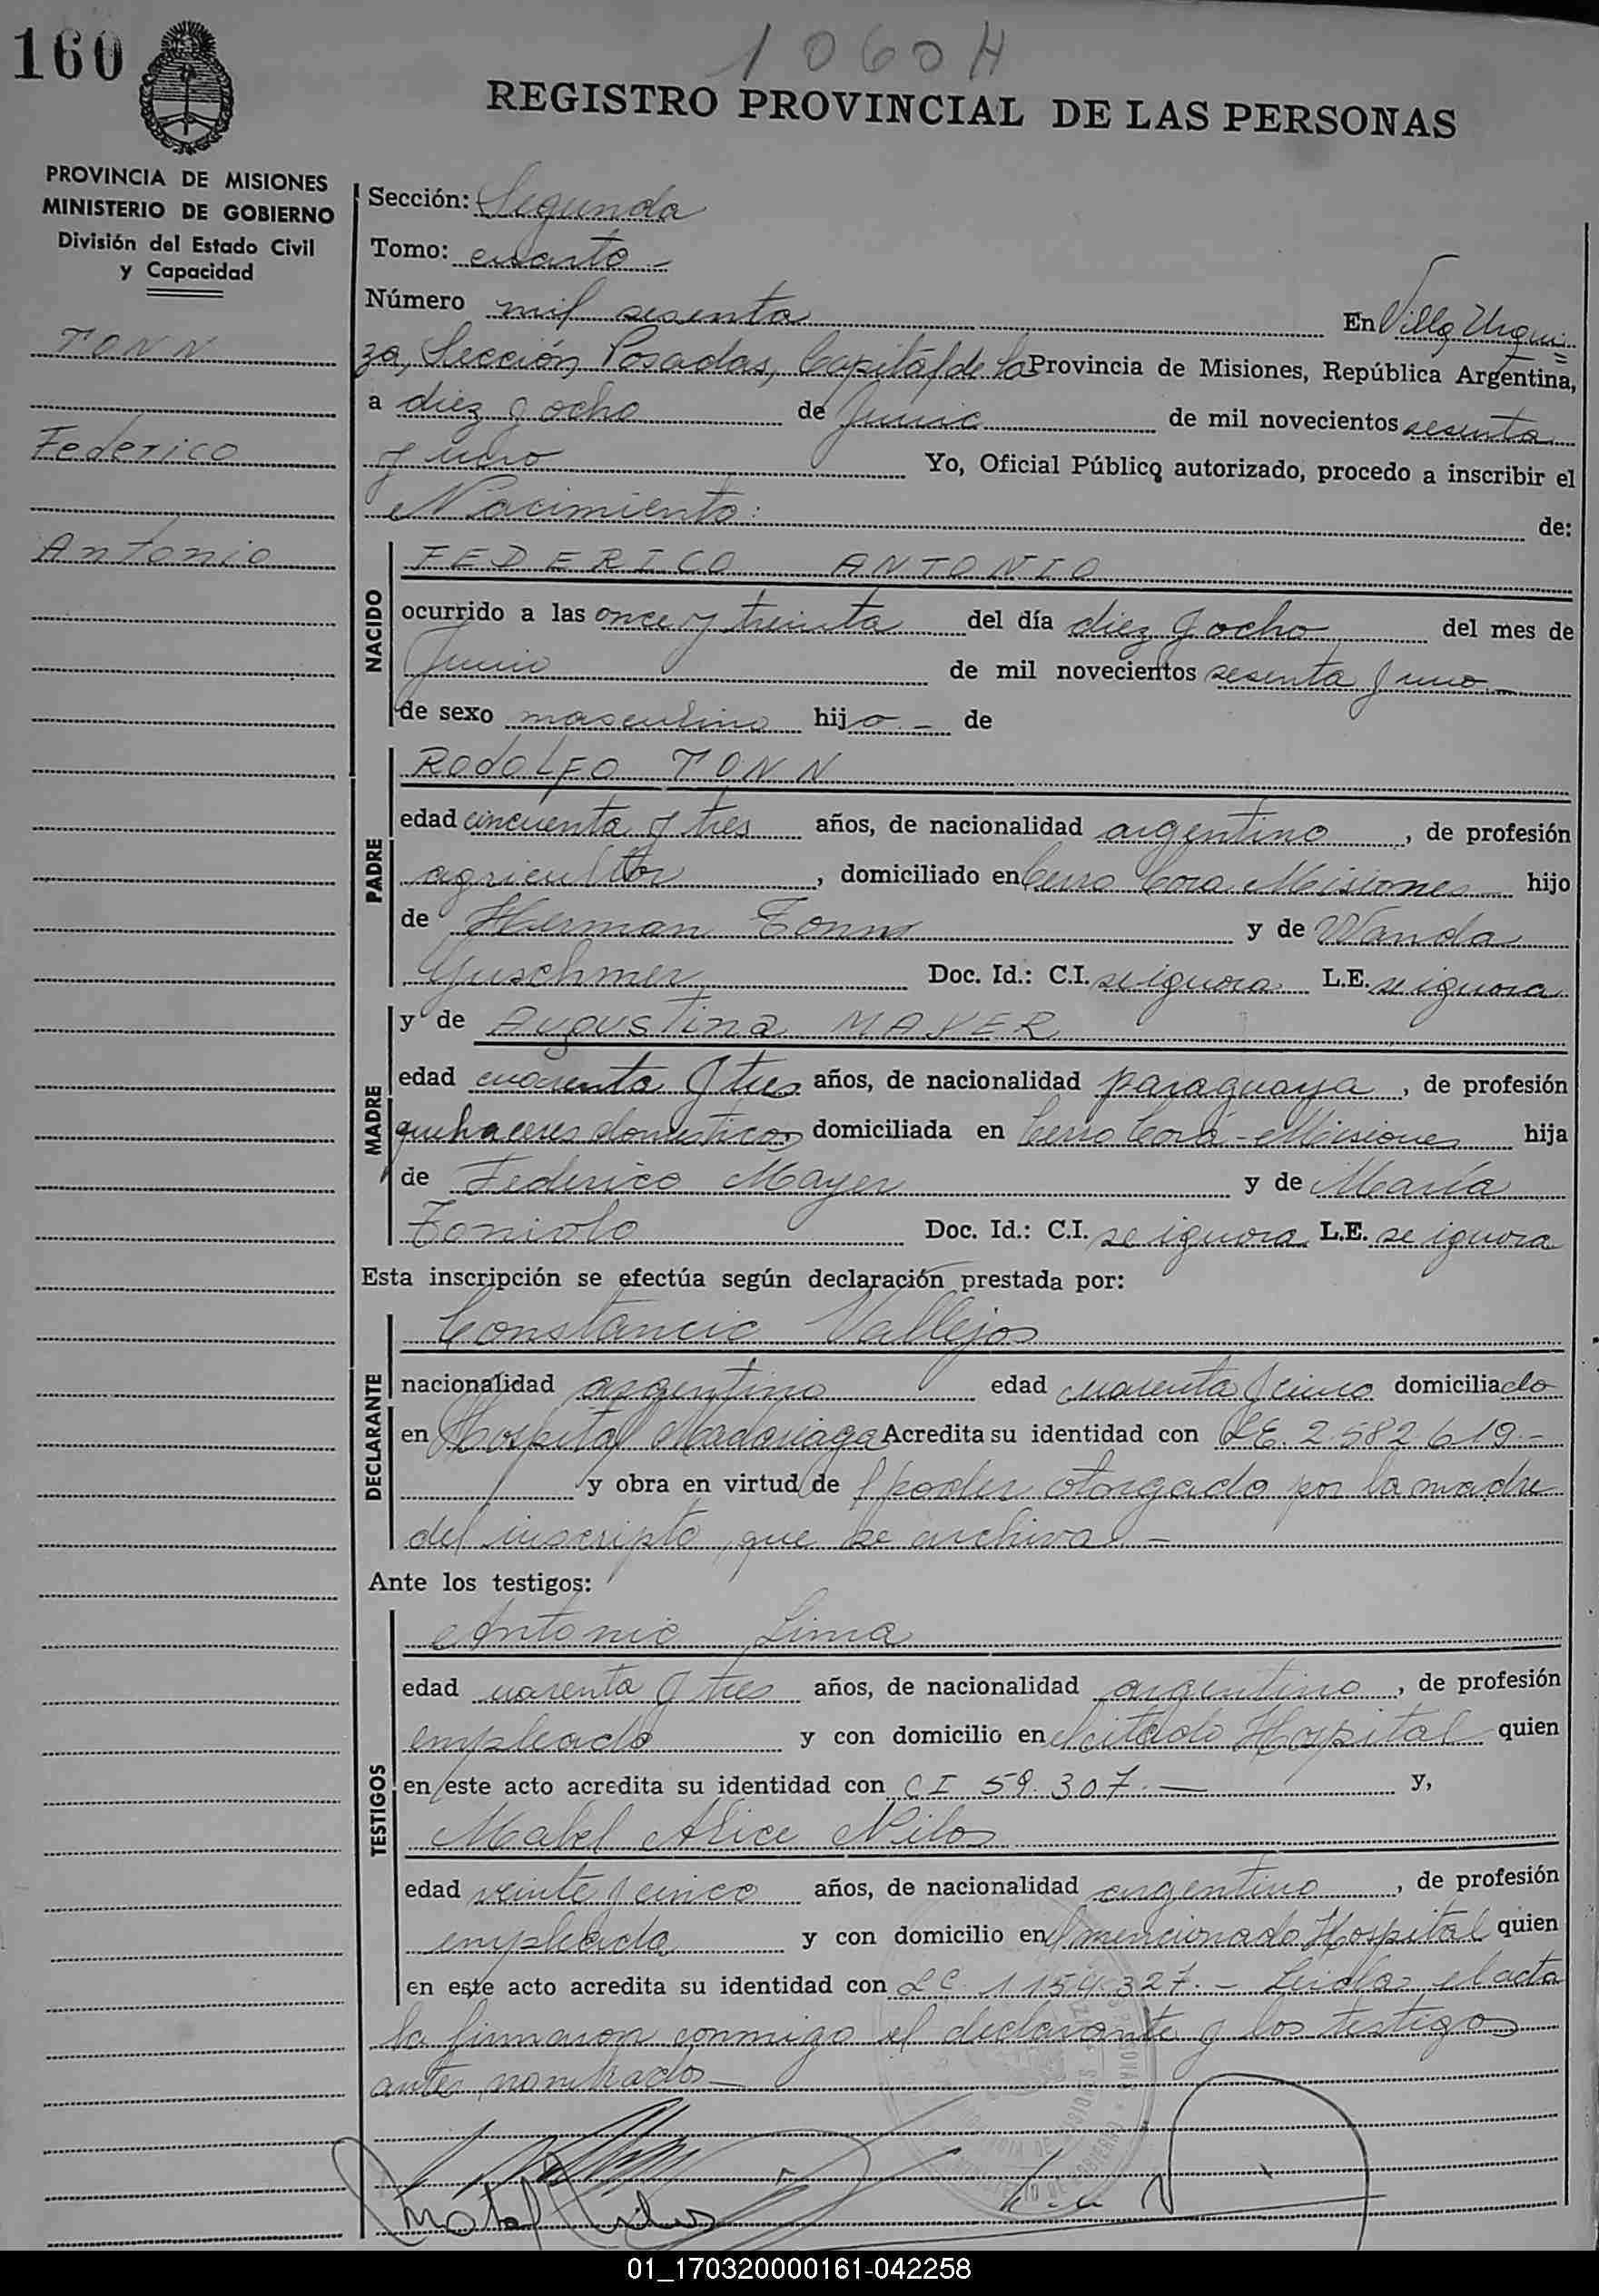 160
1060 H
REGISTRO PROVINCIAL DE LAS PERSONAS
PROVINCIA DE MISIONES
MINISTERIO DE GOBIERNO
División del Estado Civil
y Capacidad
TONN
Federico
Antonio
Sección: Segunda
Tomo: cuarto -
Número mil sesenta En Villa Urqui=
za, Sección Posadas, Capital de la Provincia de Misiones, República Argentina,
a diez y ocho de Junio de mil novecientos sesenta
y uno Yo, Oficial Público autorizado, procedo a inscribir el
Nacimiento: de:
NACIDO
FEDERICO ANTONIO
ocurrido a las once y treinta del día diez y ocho del mes de
Junio de mil novecientos sesenta y uno -
de sexo masculino hijo - de
PADRE
RODOLFO TONN
edad cincuenta y tres años, de nacionalidad argentino, de profesión
agricultor, domiciliado en Cerro Cora Misiones hijo
de Herman Tonn y de Wanda
Guschmer Doc. Id.: C.I. se ignora L.E. se ignora
MADRE
y de Augustina MAYER
edad cuarenta y tres años, de nacionalidad paraguaya, de profesión
quehaceres domesticos domiciliada en Cerro Cora - Misiones hija
de Federico Mayer y de María
Toniolo Doc. Id.: C.I. se ignora L.E. se ignora
Esta inscripción se efectúa según declaración prestada por:
DECLARANTE
Constancio Vallejos
nacionalidad argentino edad cuarenta y cinco domiciliado
en Hospital Madariaga Acredita su identidad con LE. 2.582.619.-
y obra en virtud de poder otorgado por la madre
del inscripto, que se archiva. -
Ante los testigos:
TESTIGOS
Antonio Lima
edad cuarenta y tres años, de nacionalidad argentino, de profesión
empleado y con domicilio en citado Hospital quien
en este acto acredita su identidad con CI 59.307.- y,
Mabel Alice Nilos
edad veinte y cinco años, de nacionalidad argentino, de profesión
empleada y con domicilio en el mencionado Hospital quien
en este acto acredita su identidad con LC. 1.154.327.- Leída el acta
la firmaron conmigo el declarante y los testigos
antes nombrados -
01_170320000161-042258